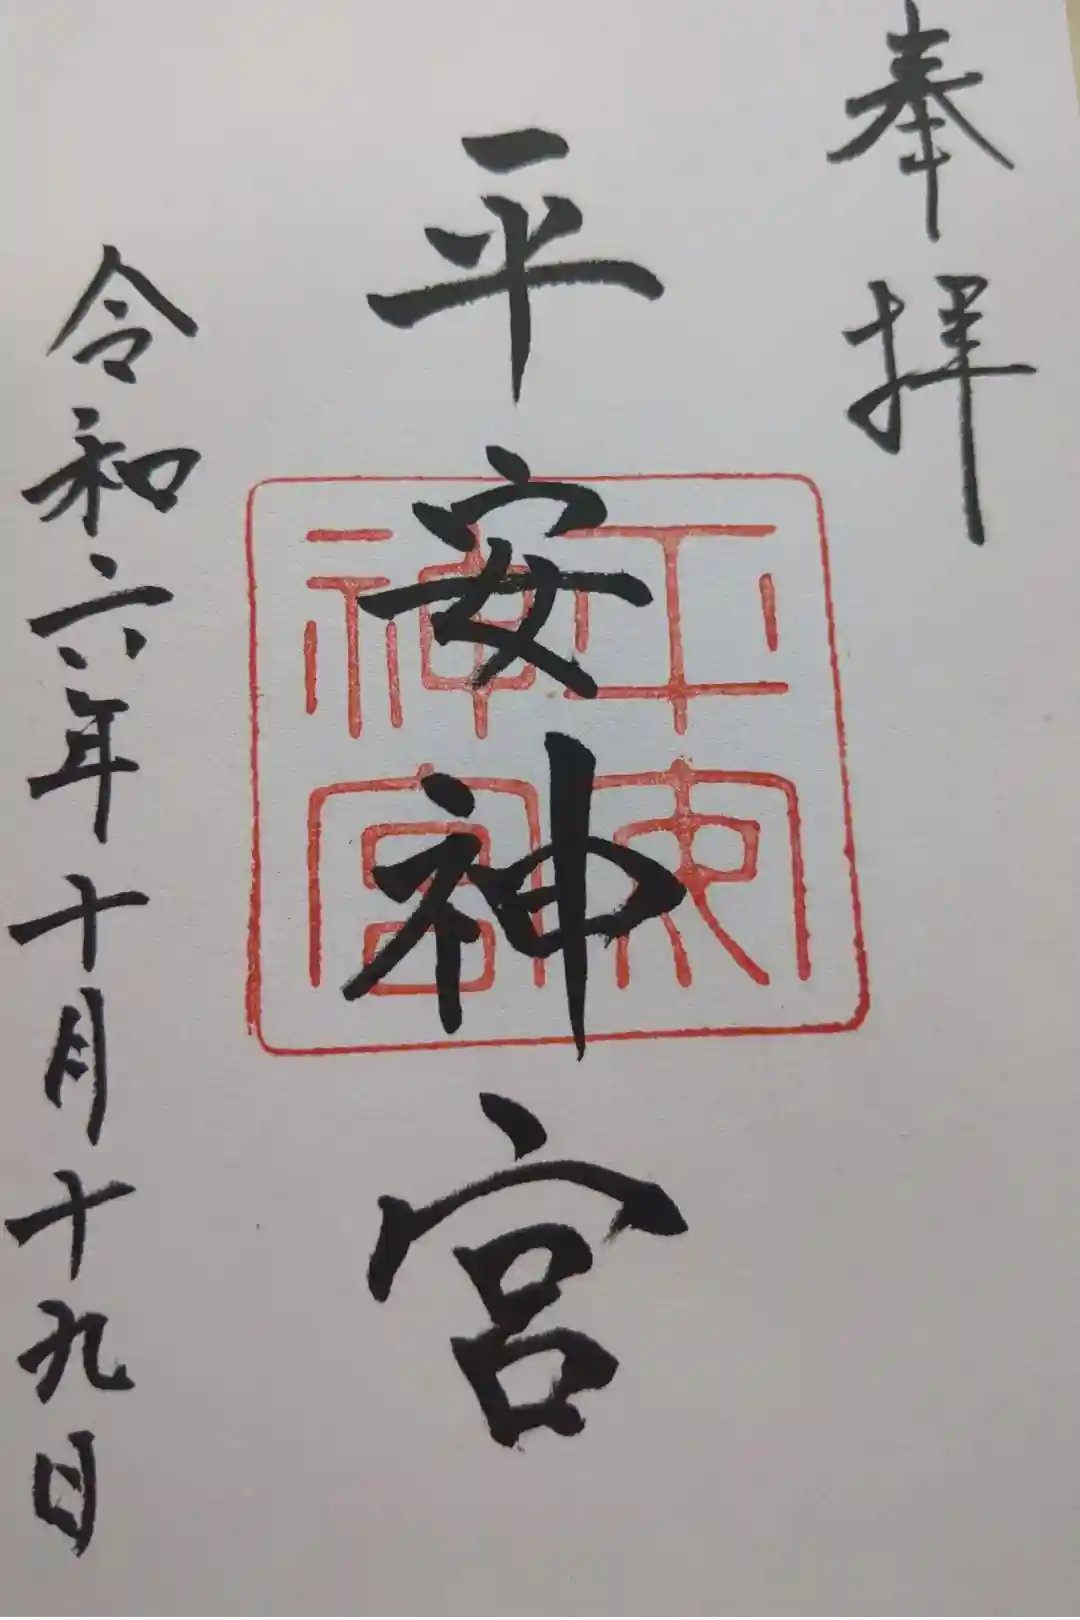 奉拝
平安神宮
令和六年十月十九日
平安
神宮